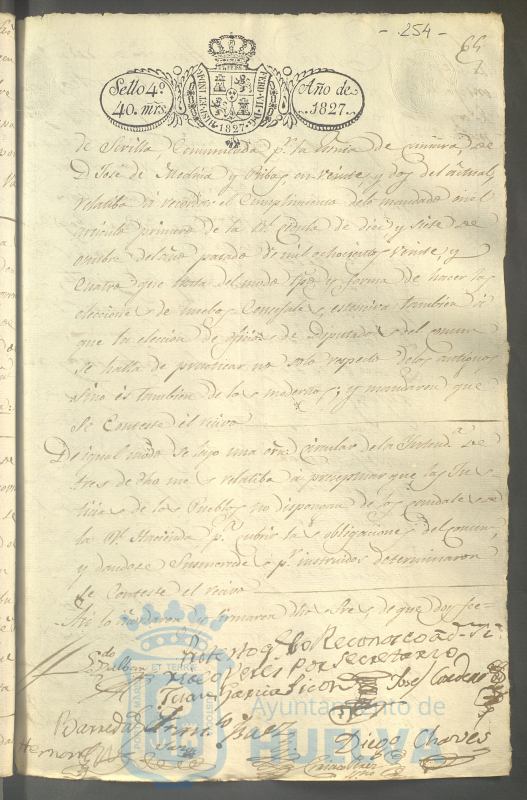 - 254 -
Sello 4º
40. mrs
Año de
1827.
HISP. ET IND. R.
FERD. VII. D. G.
1827
de Sevilla, Comunicada pr. la Escria de camara de
D. José de Medina y Ribas, en veinte y dos del actual,
relatiba á recordar el Cumplimiento de lo mandado en el
articulo primero de la Rl. Cedula de diez y siete de
ombre del año pasado de mil ochocientos veinte y
Cuatro que trata del modo tpo. y forma de hacer las
elecciones de nuebos Consejales, estensiva tambien á
que la eleccion de oficios de diputados del comun
se halla de practicar no solo respecto de los antiguos
sino es tambien de los modernos; y mandaron que
se Conteste el recivo
De igual modo se leyo una orn. Circular de la Intenda. de
tres de dho mes relatiba á que las Jus-
ticias de los Pueblos no dispongan de los caudales de
la Rl. Hacienda pa. cubrir las obligaciones del comun,
y dandose Sussmrcde pr. instruidos determinaron
se Conteste el recivo
Asi lo mandaron y firmaron dhos Sres. de que doy fee=
Reconozco
por Secretario
Juan Garcia Jose Cordero
Barreda Baez Diego Chaves
Ayuntamiento de
HUELVA